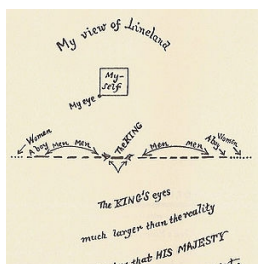 My view of Lineland
My-
self
My eye
Woman
A boy
Men
Men
The KING
Men
Men
A boy
Woman
The KING'S eyes
much larger than the reality
that HIS MAJESTY